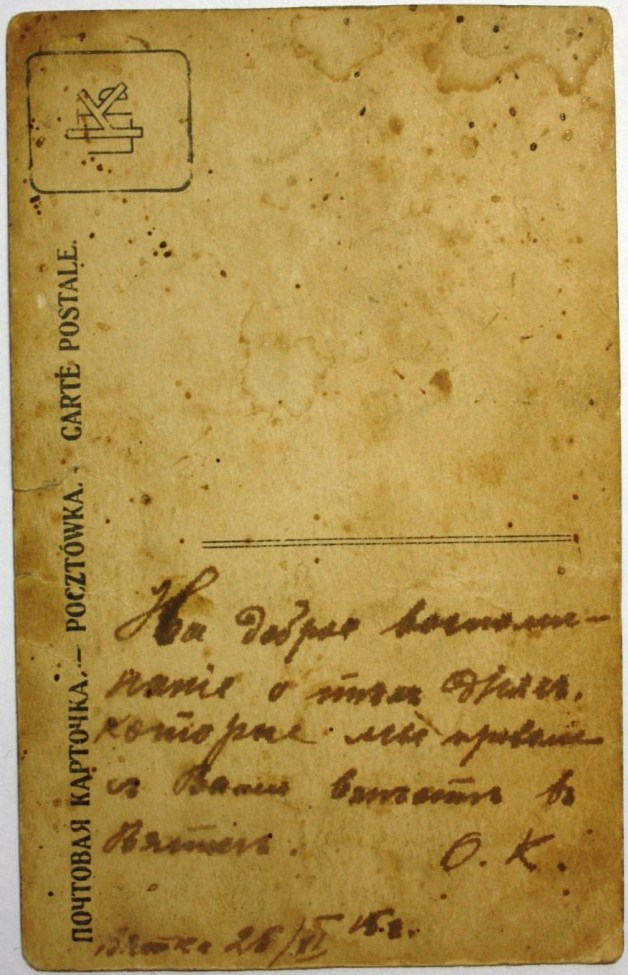 ПОЧТОВАЯ КАРТОЧКА. — POCZTÓWKA. - CARTE POSTALE.
На доброе воспоми-
наніе о тѣхъ дняхъ,
которые мы провели
съ Вами вмѣстѣ въ
Вяткѣ.
О. К.
Вятка 26/XI 15 г.